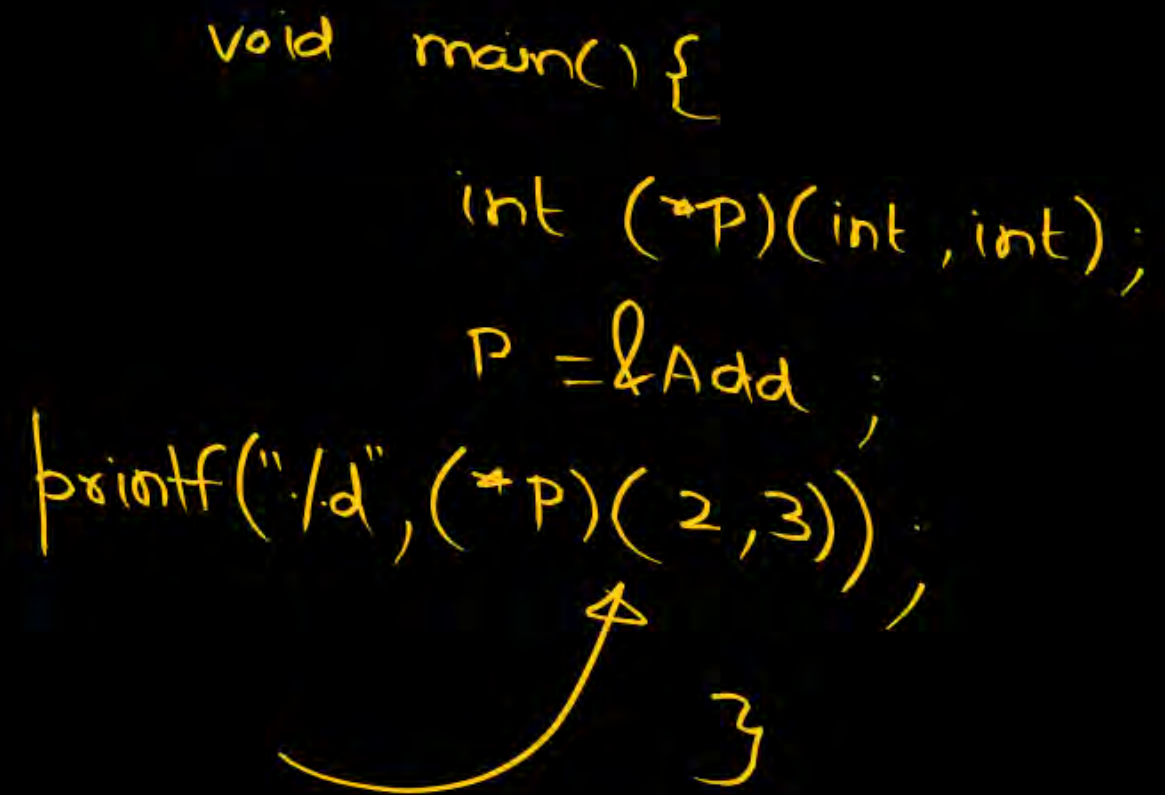 void main() {
int (*P)(int, int);
P = &Add ;
printf("%d", (*P)(2,3));
}